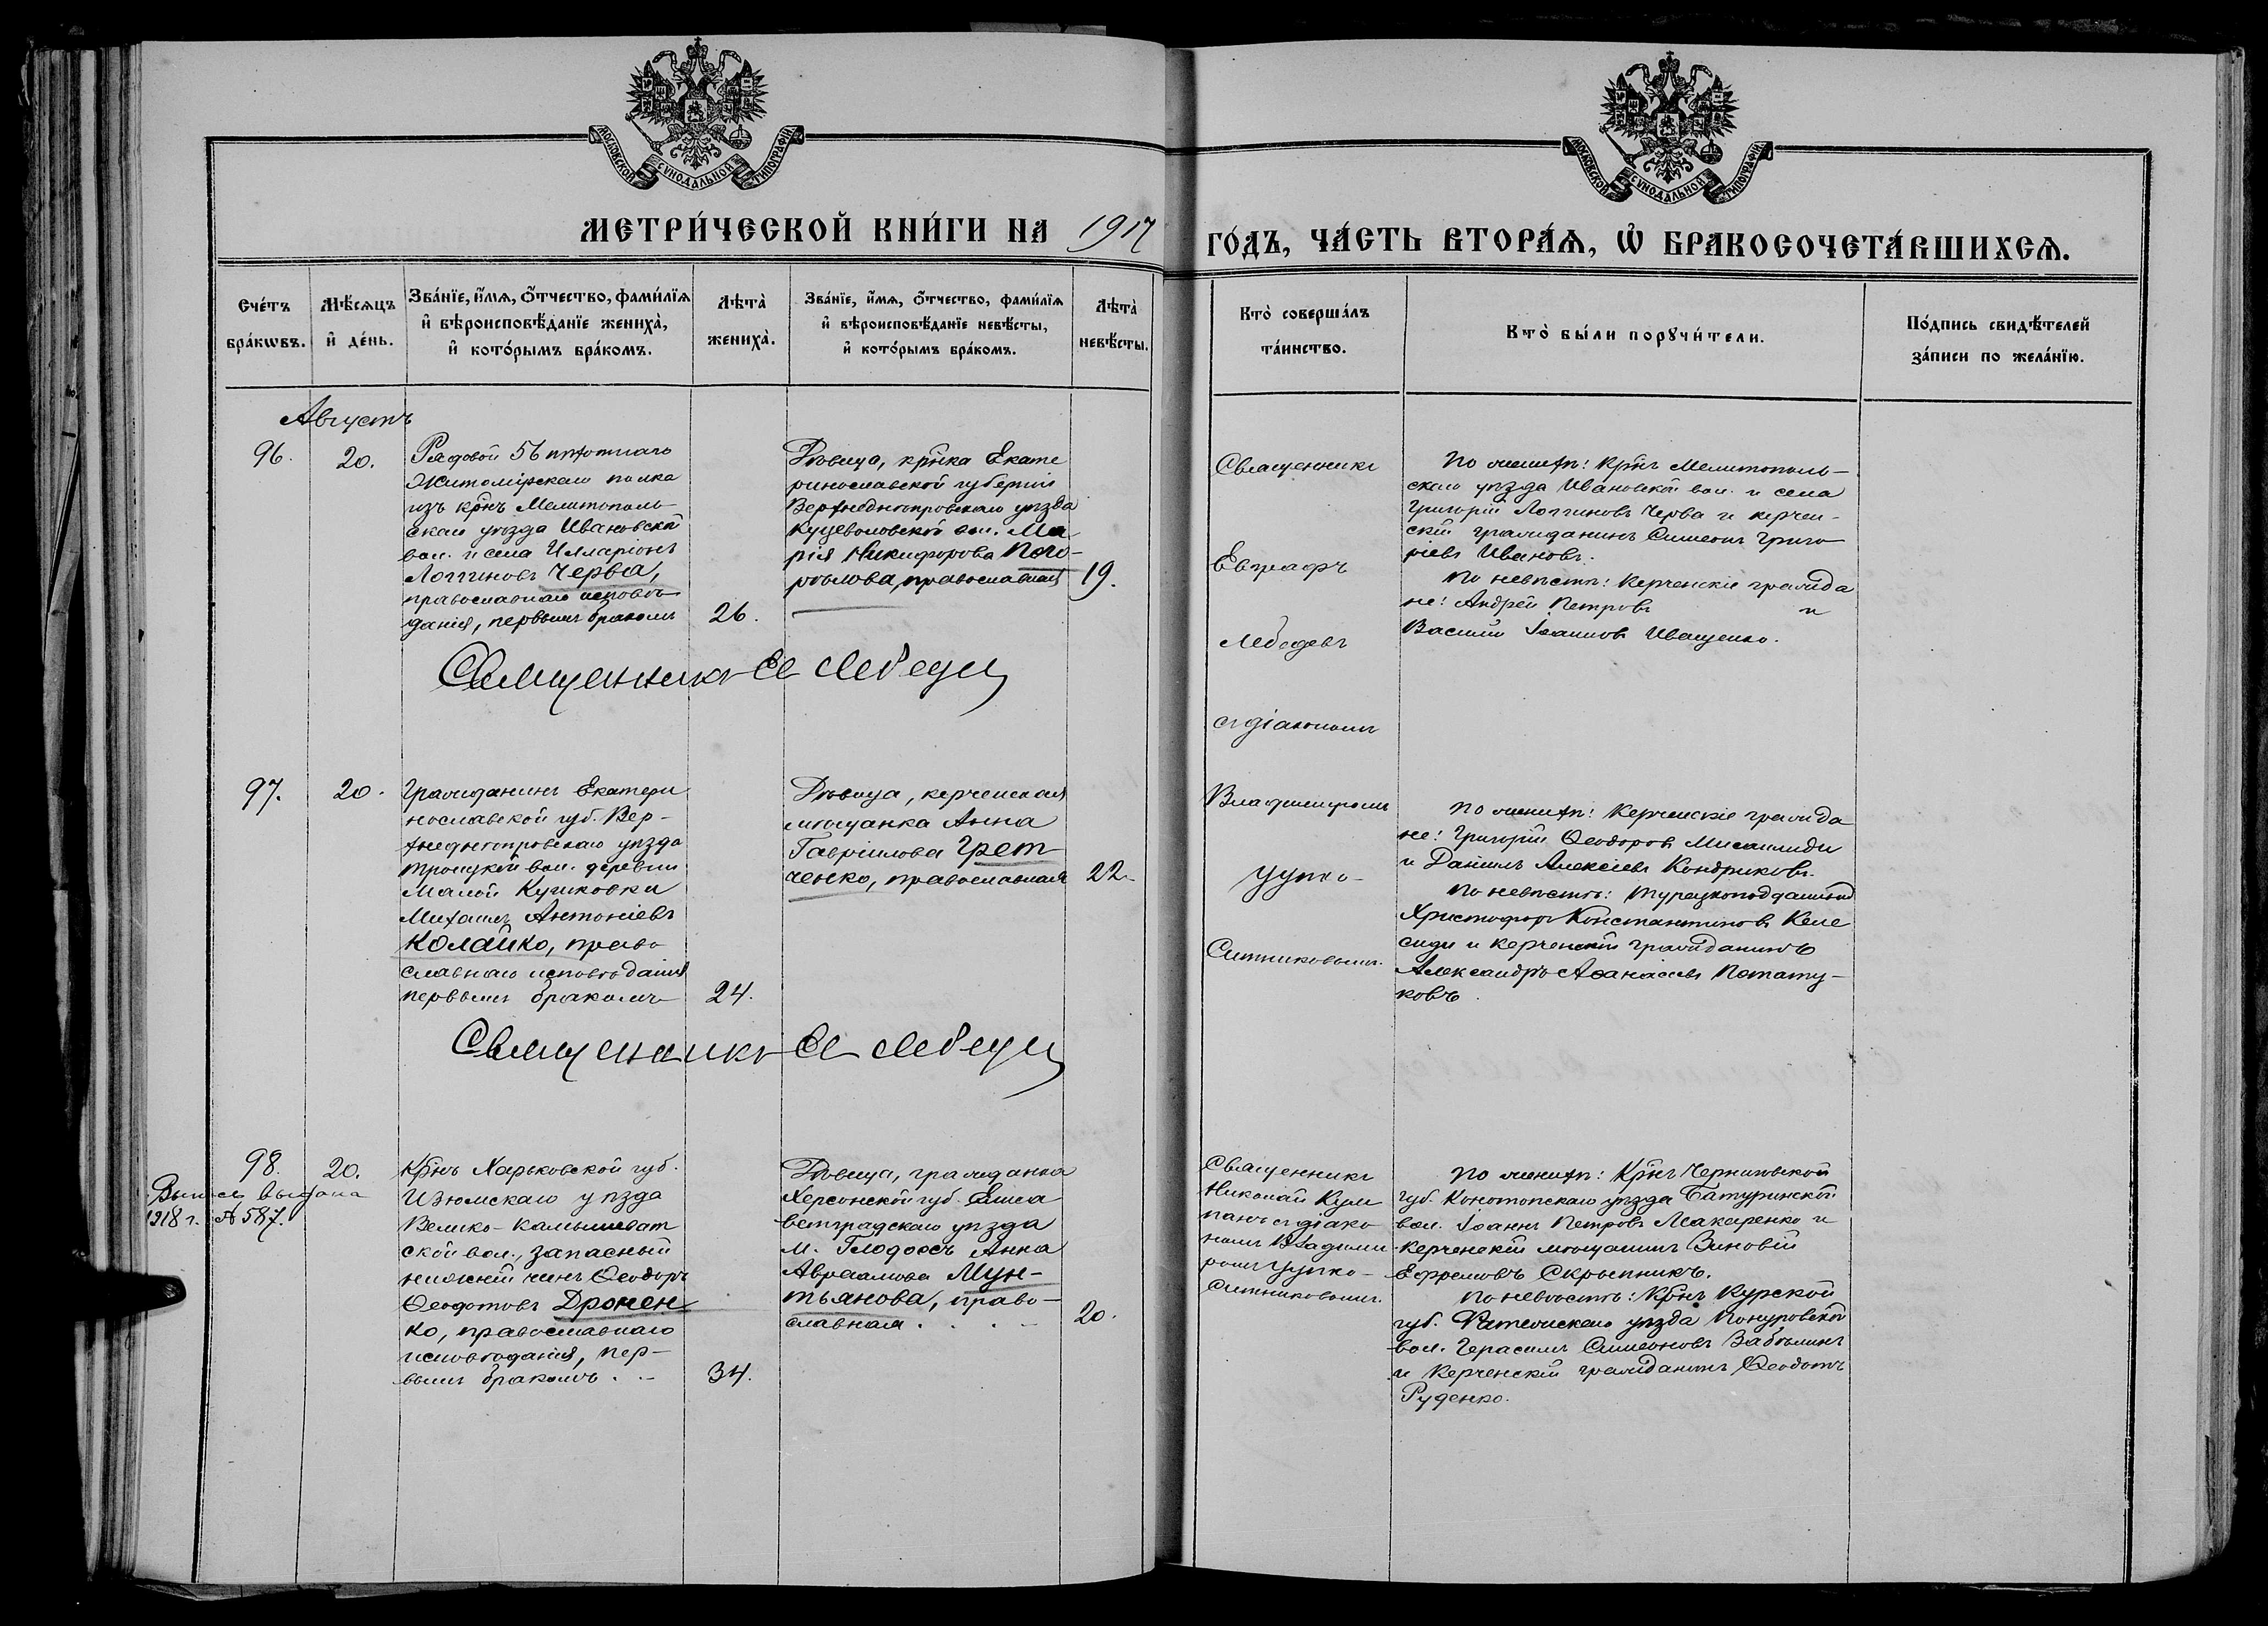 МОСКОВСКОЙ СѴНОДАЛЬНОЙ ТИПОГРАФІИ
МОСКОВСКОЙ СѴНОДАЛЬНОЙ ТИПОГРАФІИ
МЕТРИ́ЧЕСКОЙ КНИ́ГИ НА 1917
ГО́ДЪ, ЧА́СТЬ ВТОРА́Ѧ, Ѡ҆ БРАКОСОЧЕТА́ВШИХСѦ.
Сче́тъ
бра́кѡвъ.
Мѣ́сѧцъ
и҆ де́нь.
Зва́нїе, и҆́мѧ, ѻ҆́тчество, фами́лїѧ
и҆ вѣроисповѣ́данїе жениха̀,
и҆ кото́рымъ бра́комъ.
Лѣта̀
жениха̀.
Зва́нїе, и҆́мѧ, ѻ҆́тчество, фами́лїѧ
и҆ вѣроисповѣ́данїе невѣ́сты,
и҆ кото́рымъ бра́комъ.
Лѣта̀
невѣ́сты.
Кто̀ соверша́лъ
та́инство.
Кто̀ бы́ли порꙋчи́тели.
По́дпись свидѣ́телей
за́писи по жела́нїю.
Августъ
96.
20.
Рядовой 56 пѣхотнаго
Житомірскаго полка
изъ крнъ Мелитополь-
скаго уѣзда Ивановской
вол. и села Илларіонъ
Логгиновъ Черва,
православнаго исповѣ-
данія, первымъ бракомъ
26.
Дѣвица, крнка Екате
ринославской губерніи
Верхнеднѣпровскаго уѣзда
Куцеволовской вол. Ма-
рія Никифорова Пого-
рѣлова, православная
19.
Священникъ
Евграфъ
Лебедевъ
съ діакономъ
Владимиромъ
Чупко-
Ситниковымъ.
По женихѣ: крнъ Мелитополь-
скаго уѣзда Ивановской вол. и села
Григорій Логгиновъ Черва и керчен-
скій гражданинъ Симеонъ Григо
ріевъ Ивановъ.
По невѣстѣ: Керченскіе гражда
не: Андрей Петровъ и
Василій Іоанновъ Иващенко.
Священникъ Ев Лебедев
97.
20.
Гражданинъ Екатери
нославской губ. Вер-
хнеднѣпровскаго уѣзда
Троицкой вол. деревни
Малой
Михаилъ Антоніевъ
Колайко, право
славнаго исповѣданія
первымъ бракомъ
24.
Дѣвица, керченская
мѣщанка Анна
Гавріилова Грет-
ченко, православная
22.
По женихѣ: Керченскіе гражда
не: Григорій Ѳеодоровъ Мисаилиди
и Даніилъ Алексіевъ Кондриковъ.
По невѣстѣ: турецкоподданный
Христофоръ Константиновъ Келе
сиди и керченскій гражданинъ
Александръ Аѳанасіевъ Потату-
ковъ.
Священникъ Ев Лебедев
98.
20.
Выпись выдана
1918 г. № 587.
Крнъ Харьковской губ.
Изюмскаго уѣзда
Велико-Камышеват
ской вол., запасный
нижній чинъ Ѳеодоръ
Ѳеодотовъ Дронен
ко, православнаго
исповѣданія, пер-
вымъ бракомъ
34.
Дѣвица, гражданка
Херсонской губ. Елиса
ветградскаго уѣзда
м. Глодоссъ Анна
Авраамова Мун-
тьянова, право-
славная
20.
Священникъ
Николай Кум
панъ съ діако
номъ Владими
ромъ Чупко-
Ситниковымъ.
По женихѣ: Крнъ Черниговской
губ. Конотопскаго уѣзда Батуринской
вол. Іоаннъ Петровъ Макаренко и
керченскій мѣщанинъ Зиновій
Ефремовъ Скрыпникъ.
По невѣстѣ: Крнъ Курской
губ. Фатежскаго уѣзда
вол. Герасимъ Симеоновъ Забѣлинъ
и Керченскій гражданинъ Ѳеодотъ
Руденко.